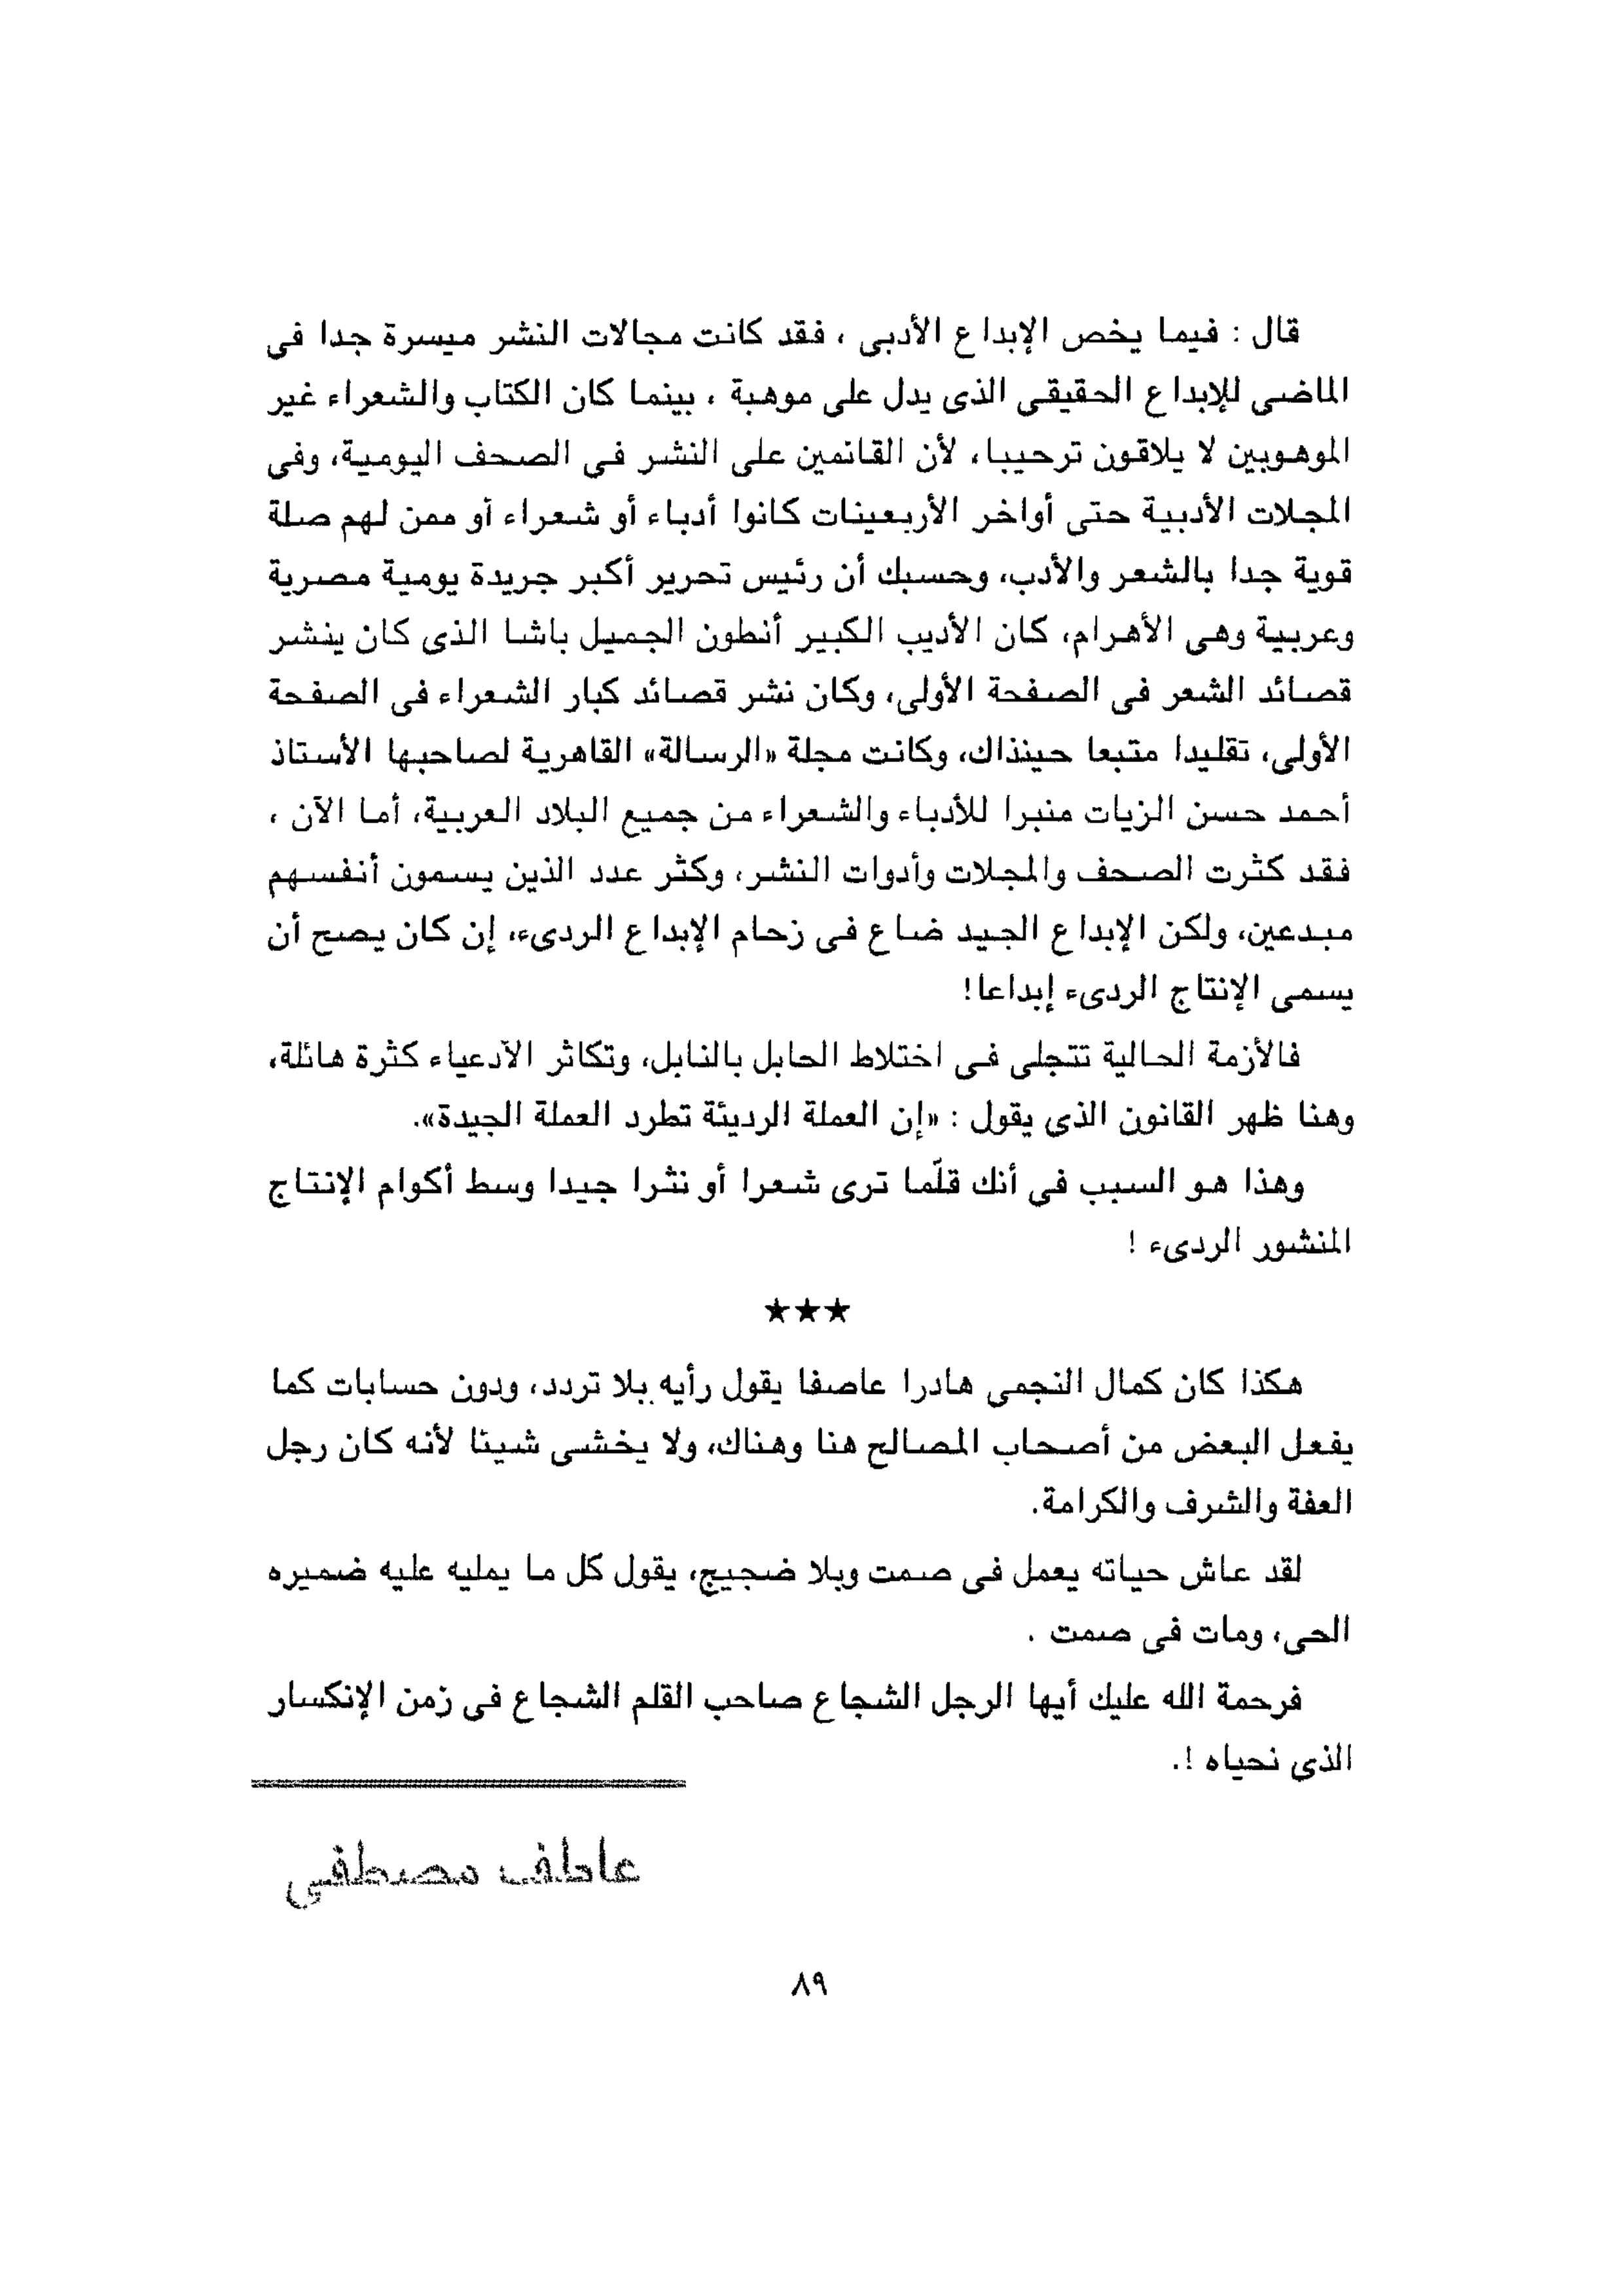 قال : فيما يخص الإبداع الأدبى ، فقد كانت مجالات النشر ميسرة جدا فى
الماضى للإبداع الحقيقى الذى يدل على موهبة ، بينما كان الكتاب والشعراء غير
الموهوبين لا يلاقون ترحيبا، لأن القائمين على النشر فى الصحف اليومية، وفى
المجلات الأدبية حتى أواخر الأربعينات كانوا أدباء أو شعراء أو ممن لهم صلة
قوية جدا بالشعر والأدب، وحسبك أن رئيس تحرير أكبر جريدة يومية مصرية
وعربية وهى الأهرام، كان الأديب الكبير أنطون الجميل باشا الذى كان ينشر
قصائد الشعر فى الصفحة الأولى، وكان نشر قصائد كبار الشعراء فى الصفحة
الأولى، تقليدا متبعا حينذاك، وكانت مجلة «الرسالة» القاهرية لصاحبها الأستاذ
أحمد حسن الزيات منبرا للأدباء والشعراء من جميع البلاد العربية، أما الآن ،
فقد كثرت الصحف والمجلات وأدوات النشر، وكثر عدد الذين يسمون أنفسهم
مبدعين، ولكن الإبداع الجيد ضاع فى زحام الإبداع الردىء، إن كان يصح أن
يسمى الإنتاج الردىء إبداعا!
فالأزمة الحالية تتجلى فى اختلاط الحابل بالنابل، وتكاثر الأدعياء كثرة هائلة،
وهنا ظهر القانون الذى يقول : «إن العملة الرديئة تطرد العملة الجيدة».
وهذا هو السبب فى أنك قلّما ترى شعرا أو نثرا جيدا وسط أكوام الإنتاج
المنشور الردىء !
★★★
هكذا كان كمال النجمى هادرا عاصفا يقول رأيه بلا تردد، ودون حسابات كما
يفعل البعض من أصحاب المصالح هنا وهناك، ولا يخشى شيئا لأنه كان رجل
العفة والشرف والكرامة.
لقد عاش حياته يعمل فى صمت وبلا ضجيج، يقول كل ما يمليه عليه ضميره
الحى، ومات فى صمت .
فرحمة الله عليك أيها الرجل الشجاع صاحب القلم الشجاع فى زمن الإنكسار
الذى نحياه !.
عاطف مصطفى
٨٩